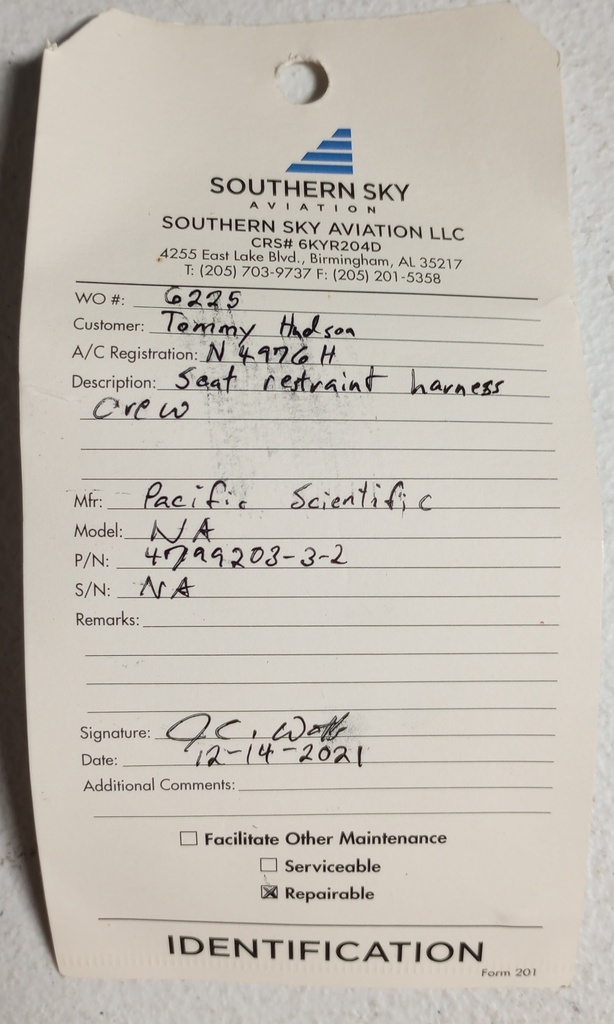 SOUTHERN SKY
AVIATION
SOUTHERN SKY AVIATION LLC
CRS# 6KYR204D
4255 East Lake Blvd., Birmingham, AL 35217
T: (205) 703-9737 F: (205) 201-5358
WO #: 6225
Customer: Tommy Hudson
A/C Registration: N 4976 H
Description: Seat restraint harness
Crew
Mfr: Pacific Scientific
Model: NA
P/N: 4799203-3-2
S/N: NA
Remarks:
Signature: J.C. Watts
Date: 12-14-2021
Additional Comments:
☐ Facilitate Other Maintenance
☐ Serviceable
☒ Repairable
IDENTIFICATION
Form 201